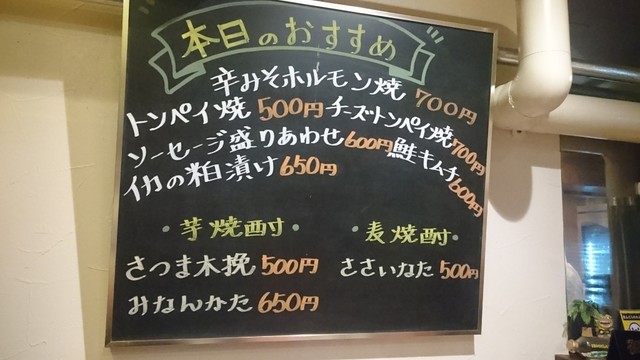 本日のおすすめ
辛みそホルモン焼 700円
トンペイ焼 500円 チーズトンペイ焼 700円
ソーセージ盛りあわせ 600円 鮭キムチ 600円
イカの粕漬け 650円
・芋焼酎・ ・麦焼酎・
さつま木挽 500円 ささいなた 500円
みなんかた 650円